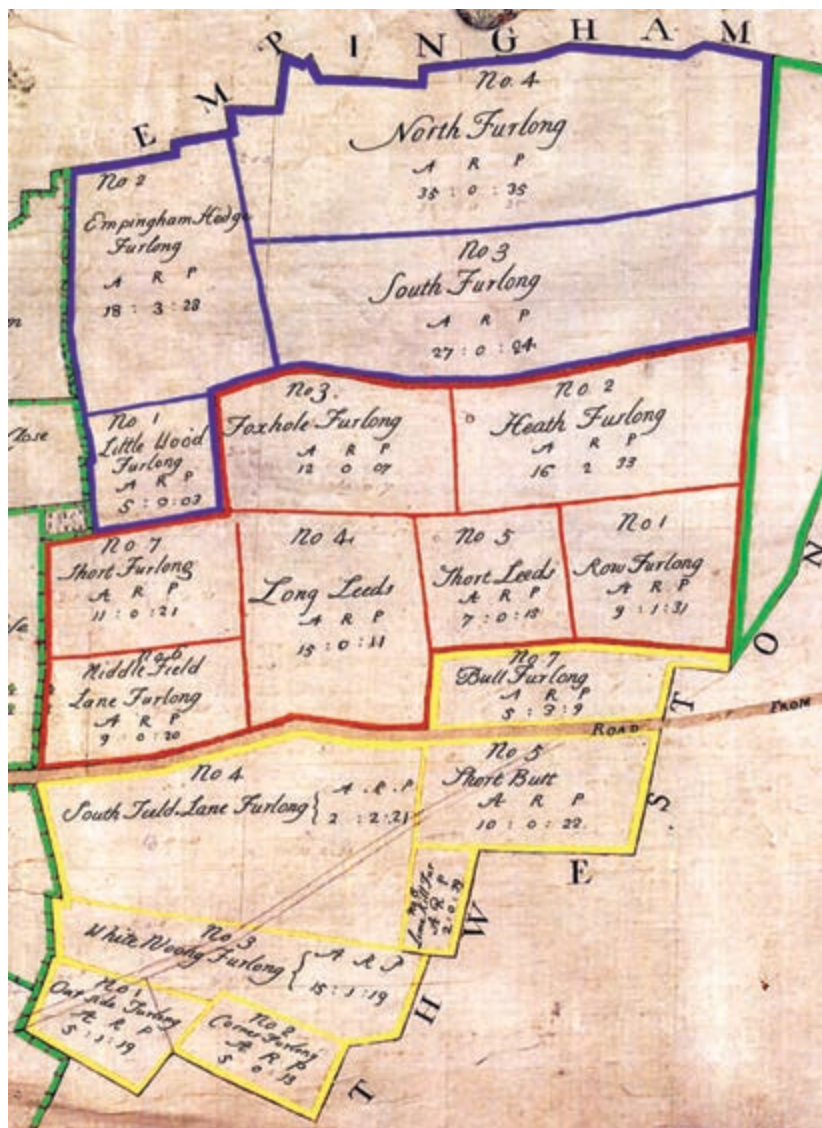 EMPINGHAM
No. 4
North Furlong
A R P
35 : 0 : 35
No 2
Empingham Hedge
Furlong
A R P
18 : 3 : 28
No 3
South Furlong
A R P
27 : 0 : 24
No 1
Little Wood
Furlong
A R P
5 : 0 : 03
No 3.
Foxhole Furlong
A R P
12 0 07
No 2
Heath Furlong
A R P
16 2 33
Close
No 7
Short Furlong
A R P
11 : 0 : 21
No 4
Long Leeds
A R P
15 : 0 : 11
No 5
Short Leeds
A R P
7 : 0 : 13
No 1
Row Furlong
A R P
9 : 1 : 31
No 6
Middle Field
Lane Furlong
A R P
9 : 0 : 20
No 7
Butt Furlong
A R P
5 : 3 : 9
ROAD
FROM
No 4
South Field Lane Furlong
A . R . P
2 : 2 : 21
No 5
Short Butt
A R P
10 : 0 : 22
Fur
A R P
2 : 0
No 3
White Furlong
A R P
15 : 1 : 19
No 1
Out side Furlong
A R P
5 : 1 : 19
No 2
Corner Furlong
A R P
5 0 13
THWESTON